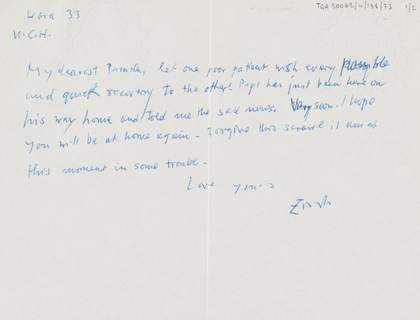 Ward 33
TGA 20062/4/196/73 1/2
U.C.H.
My dearest let one poor patient wish every possible
and quick recovery to the other! Pops has just been here on
his way home and told me the sad news. Very soon I hope
you will be at home again - Forgive this scrawl I am at
this moment in some trouble -
Love yours